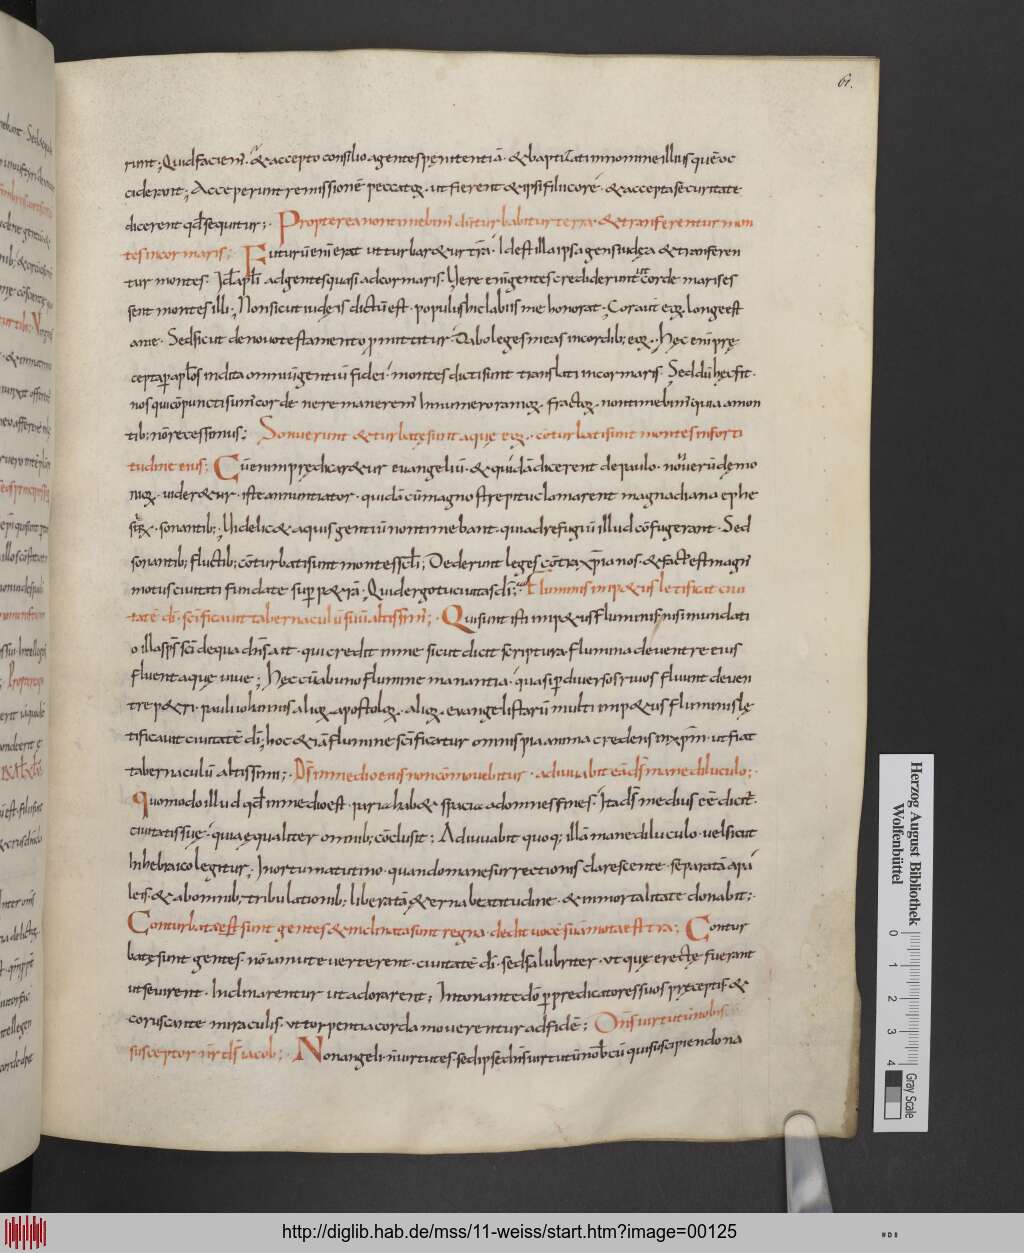 61.
runt; Quid faciem̅. & accepto consilio agentes pęnitentiā. & baptizati in nomine illius quē oc
ciderant; Acceperunt remissionē peccatoꝝ. ut fierent & ipsi filii core. & accepta securitate
dicerent qd̅ sequitur; Propterea non timebim̅ dū turbabitur terra & transferentur mon
tes in cor maris; Futurū enī erat ut turbar&ur t̅rā. Id est illa ipsa gens iudęa & transferen
tur montes. Id ē apl̅i ad gentes quasi ad cor maris. Vere enī gentes crediderunt corde maris es
sent montes illi; Non sicut iudęis dictū est. populus hic labiis me honorat; Cor aut̅ eoꝝ longe est
a me. Sed sicut de nouo testamento ꝓmittitur. Dabo leges meas in cordib; eoꝝ. Hęc enī prę
cepta ꝑ apl̅os indita omniū gentiū fidei. montes dicti sunt translati in cor maris. Sed dū hec fit.
nos qui cōpuncti sum̅ corde uere manerem̅ in numero ramoꝝ. fractoꝝ. non timebim̅ quia a mon
tib; nō recessimus; Sonuerunt & turbatę sunt aquę eoꝝ. cōturbati sunt montes in forti
tudine eius; Cū enim prędicar&ur euangeliū. & quidā dicerent de paulo. nouorū dęmo
nioꝝ. uider&ur iste annuntiator. quidā cū magno strepitu clamarent magna diana ephe
sioꝝ. sonantib; Videlic& aquis gentiū non timebant. quia ad refugiū illud cōfugerant. Sed
sonantib; fluctib; cōturbati sunt montes scl̅i; Dederunt leges cōtra xp̅ianos. & fact̅ est magn̅
motus ciuitati fundate sup̱ p&rā. Quid ergo tu ciuitas dī; Fluminis imp&us letificat ciui
tatē dī. sc̅ificauit tabernaculū suū altissim̅; Qui sunt isti imp&us fluminis. nisi inundati
o illa sps̅ sc̅i de qua dn̅s ait. qui credit in me sicut dicit scriptura. flumina de uentre eius
fluent aquę uiue; Hęc cū ab uno flumine manantia. quasi ꝑ diuersos riuos fluunt de uen
tre p&ri. pauli iohannis alioꝝ apostoloꝝ. alioꝝ. euangelistarū multi imp&us fluminis lę
tificant ciuitatē dī; hoc &iā flumine sc̅ificatur omnis pia anima credens in xp̅m. ut fiat
tabernaculū altissimi; Ds̅ in medio eius non cōmouebitur. adiuuabit eā ds̅ mane diluculo;
Quomodo illud qd̅ in medio est. paria hab& spacia ad omnes fines. Ita ds̅ medius eē dicit̅.
ciuitatis suę. quia ęqualiter omnib; cōclusit; Adiuuabit quoq; illā mane diluculo. uel sicut
in hebraico legitur; In ortu matutino. quando mane surrectionis clarescente. separatā a pa
leis. & ab omnib; tribulationib; liberatā &erna beatitudine. & inmortalitate donabit;
Conturbatę sunt gentes & inclinata sunt regna. dedit uocē suā mota est t̅ra; Contur
batę sunt gentes. nō ira mute uerterent. ciuitatē dī. sed salubriter. ut quę erectę fuerant
ut seuirent. Inclinarentur ut adorarent; Intonante dō ꝑ predicatores suos pręceptis. &
coruscante miraculis. ut torpentia corda mouerentur ad fidē; Dn̅s uirtutū nobis
susceptor nr̅ ds̅ iacob; Non angeli n̅ uirtutes. sed ipse dn̅s uirtutū nob̅cū qui suscipiendo na
Herzog August Bibliothek
Wolfenbüttel
0 1 2 3 4
Gray Scale
http://diglib.hab.de/mss/11-weiss/start.htm?image=00125